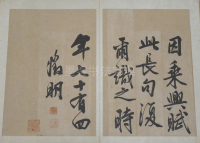 因乘興賦
此長句復
爾識之時
年七十有四
徵明